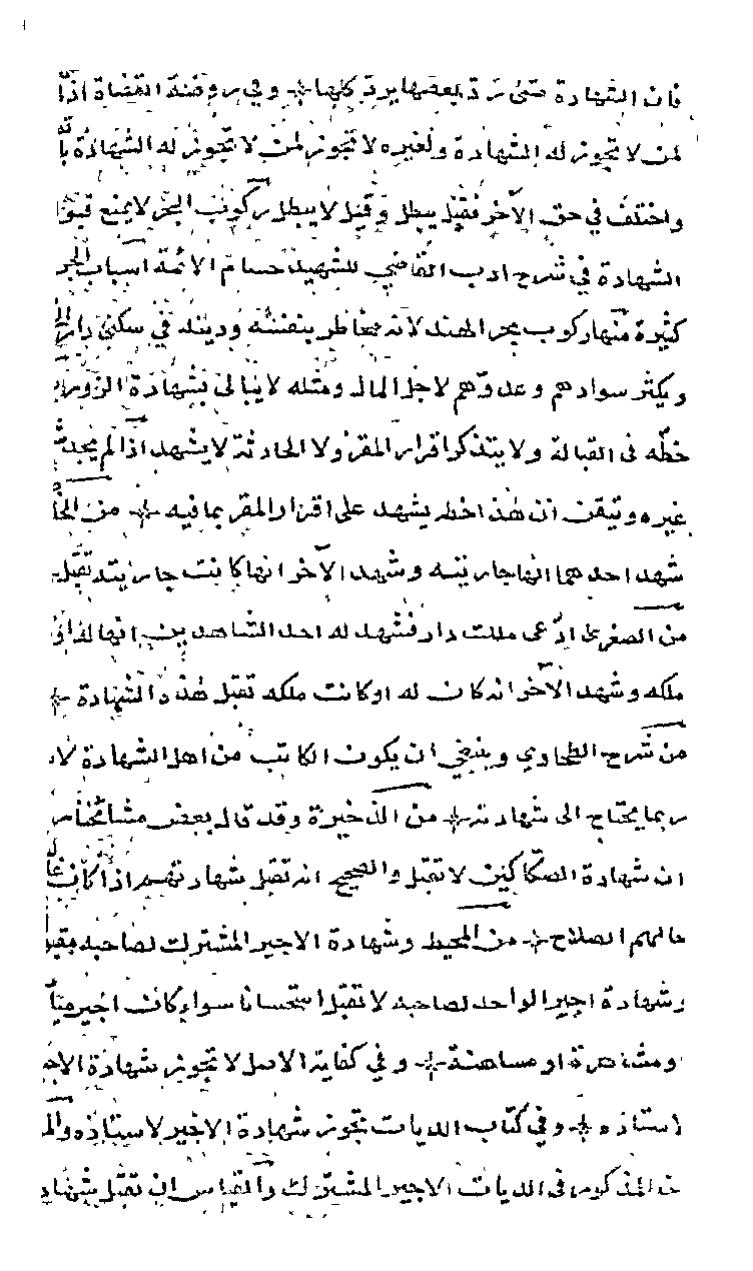 فان الشهادة متى رد بعضها يرد كلها وفي روضة القضاة اذا
لمن لا تجوز له الشهادة ولغيره لا تجوز لمن لا تجوز له الشهادة
واختلف في حق الآخر فقيل يبطل وقيل لا يبطل ركوب البحر لا يمنع قبول
الشهادة في شرح ادب القاضي للشهيد حسام الائمة اسباب الجرح
كثيرة منها ركوب بحر الهند لانه مخاطر بنفسه ودينه في سكنى دار
ويكثر سوادهم وعددهم لاجل المال ومثله لا يبالي بشهادة الزور
خطه في القبالة ولا يتذكر اقرار المقر ولا الحادثة لا يشهد اذا لم
غيره وتيقن ان هذا خطه يشهد على اقرار المقر بما فيه من
شهد احدهما انها جاريته وشهد الآخر انها كانت جاريته تقبل
من الصغرى ادعى ملك دار فشهد له احد الشاهدين انها له او
ملكه وشهد الآخر انه كان له او كانت ملكه تقبل هذه الشهادة
من شرح الطحاوي وينبغي ان يكون الكاتب من اهل الشهادة لانه
ربما يحتاج الى شهادته من الذخيرة وقد قال بعض مشائخنا
ان شهادة الصكاكين لا تقبل والصحيح انه تقبل شهادتهم اذا كان
حالهم الصلاح من المحيط وشهادة الاجير المشترك لصاحبه
وشهادة اجير الواحد لصاحبه لا تقبل استحسانا سواء كان اجير
ومشاهرة او مسانهة وفي كفاية الاصل لا تجوز شهادة
لاستاذه وفي كتاب الديات تجوز شهادة الاجير لاستاذه
المذكور في الديات الاجير المشترك والقياس ان تقبل